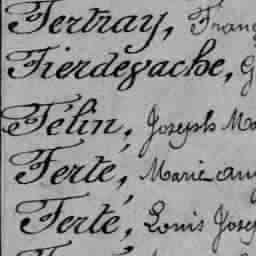 Fertray, Franç
Fierdegache, G
Félin, Joseph Ma
Ferté, Marie ang
Ferté, Louis Josep